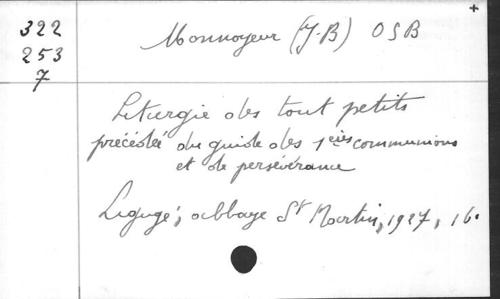 +
322
253
7
Monnoyeur (J-B) OSB
Liturgie des tout petits
précédée du guide des 1ères communions
et de persévérance
Ligugé, abbaye St Martin, 1927, 16.